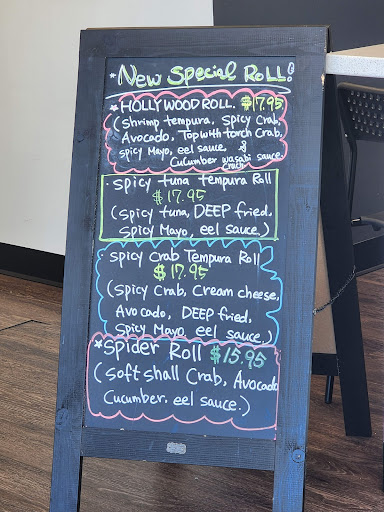 New Special Roll!
* HOLLYWOOD ROLL. $17.95
(shrimp tempura, spicy crab,
Avocado, Top with torch crab,
spicy Mayo, eel sauce, &
Cucumber wasabi sauce.
Crunch
· spicy tuna tempura Roll
$17.95
(spicy tuna, DEEP fried,
spicy Mayo, eel sauce.)
· spicy Crab Tempura Roll
$17.95
(spicy Crab, Cream cheese,
Avocado, DEEP fried,
spicy Mayo, eel sauce.)
* Spider Roll $15.95
(soft shall Crab, Avocado
Cucumber. eel sauce.)